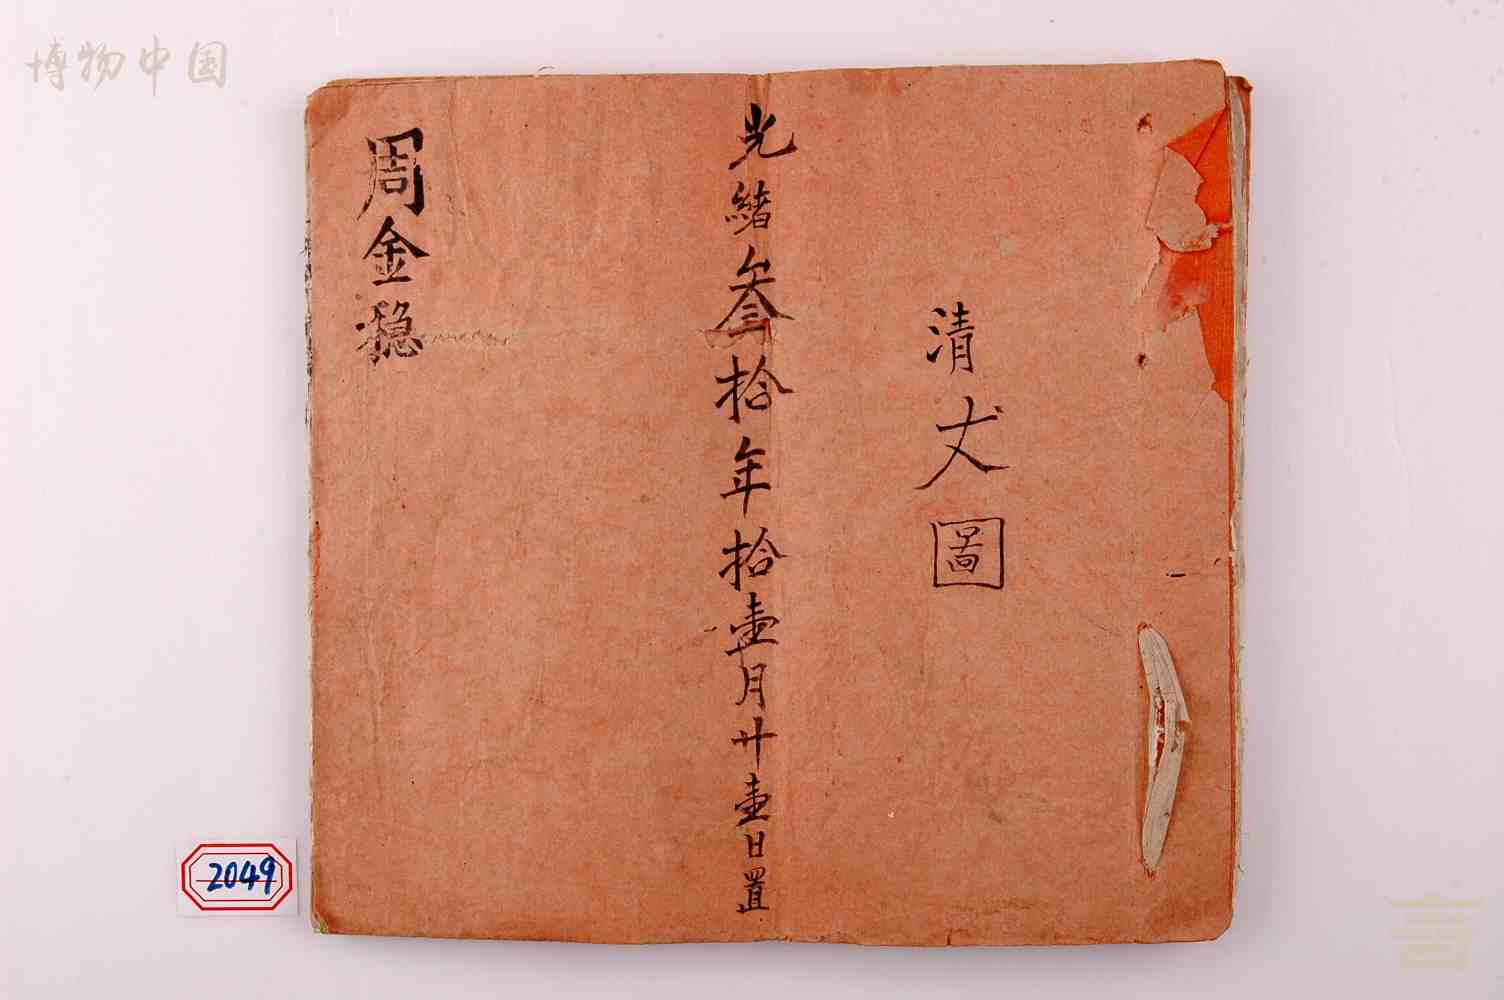 博物中国
清丈圖
光緒叁拾年拾壹月廿壹日置
周金穩
2049